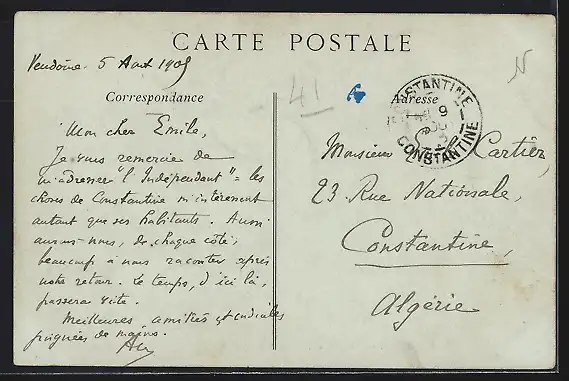 CARTE POSTALE
Vendôme 5 Aout 1905
Correspondance
Adresse
41
CONSTANTINE
CONSTANTINE
Mon cher Emile,
Je vous remercie de
m'adresser "l'Indépendant" = les
choses de Constantine m'intéressent
autant que ses habitants. Aussi
aurons-nous, de chaque côté,
beaucoup à nous raconter après
notre retour. Le temps, d'ici là,
passera vite.
Meilleures amitiés et cordiales
poignées de mains.
Monsieur Cartier,
23 Rue Nationale,
Constantine,
Algérie